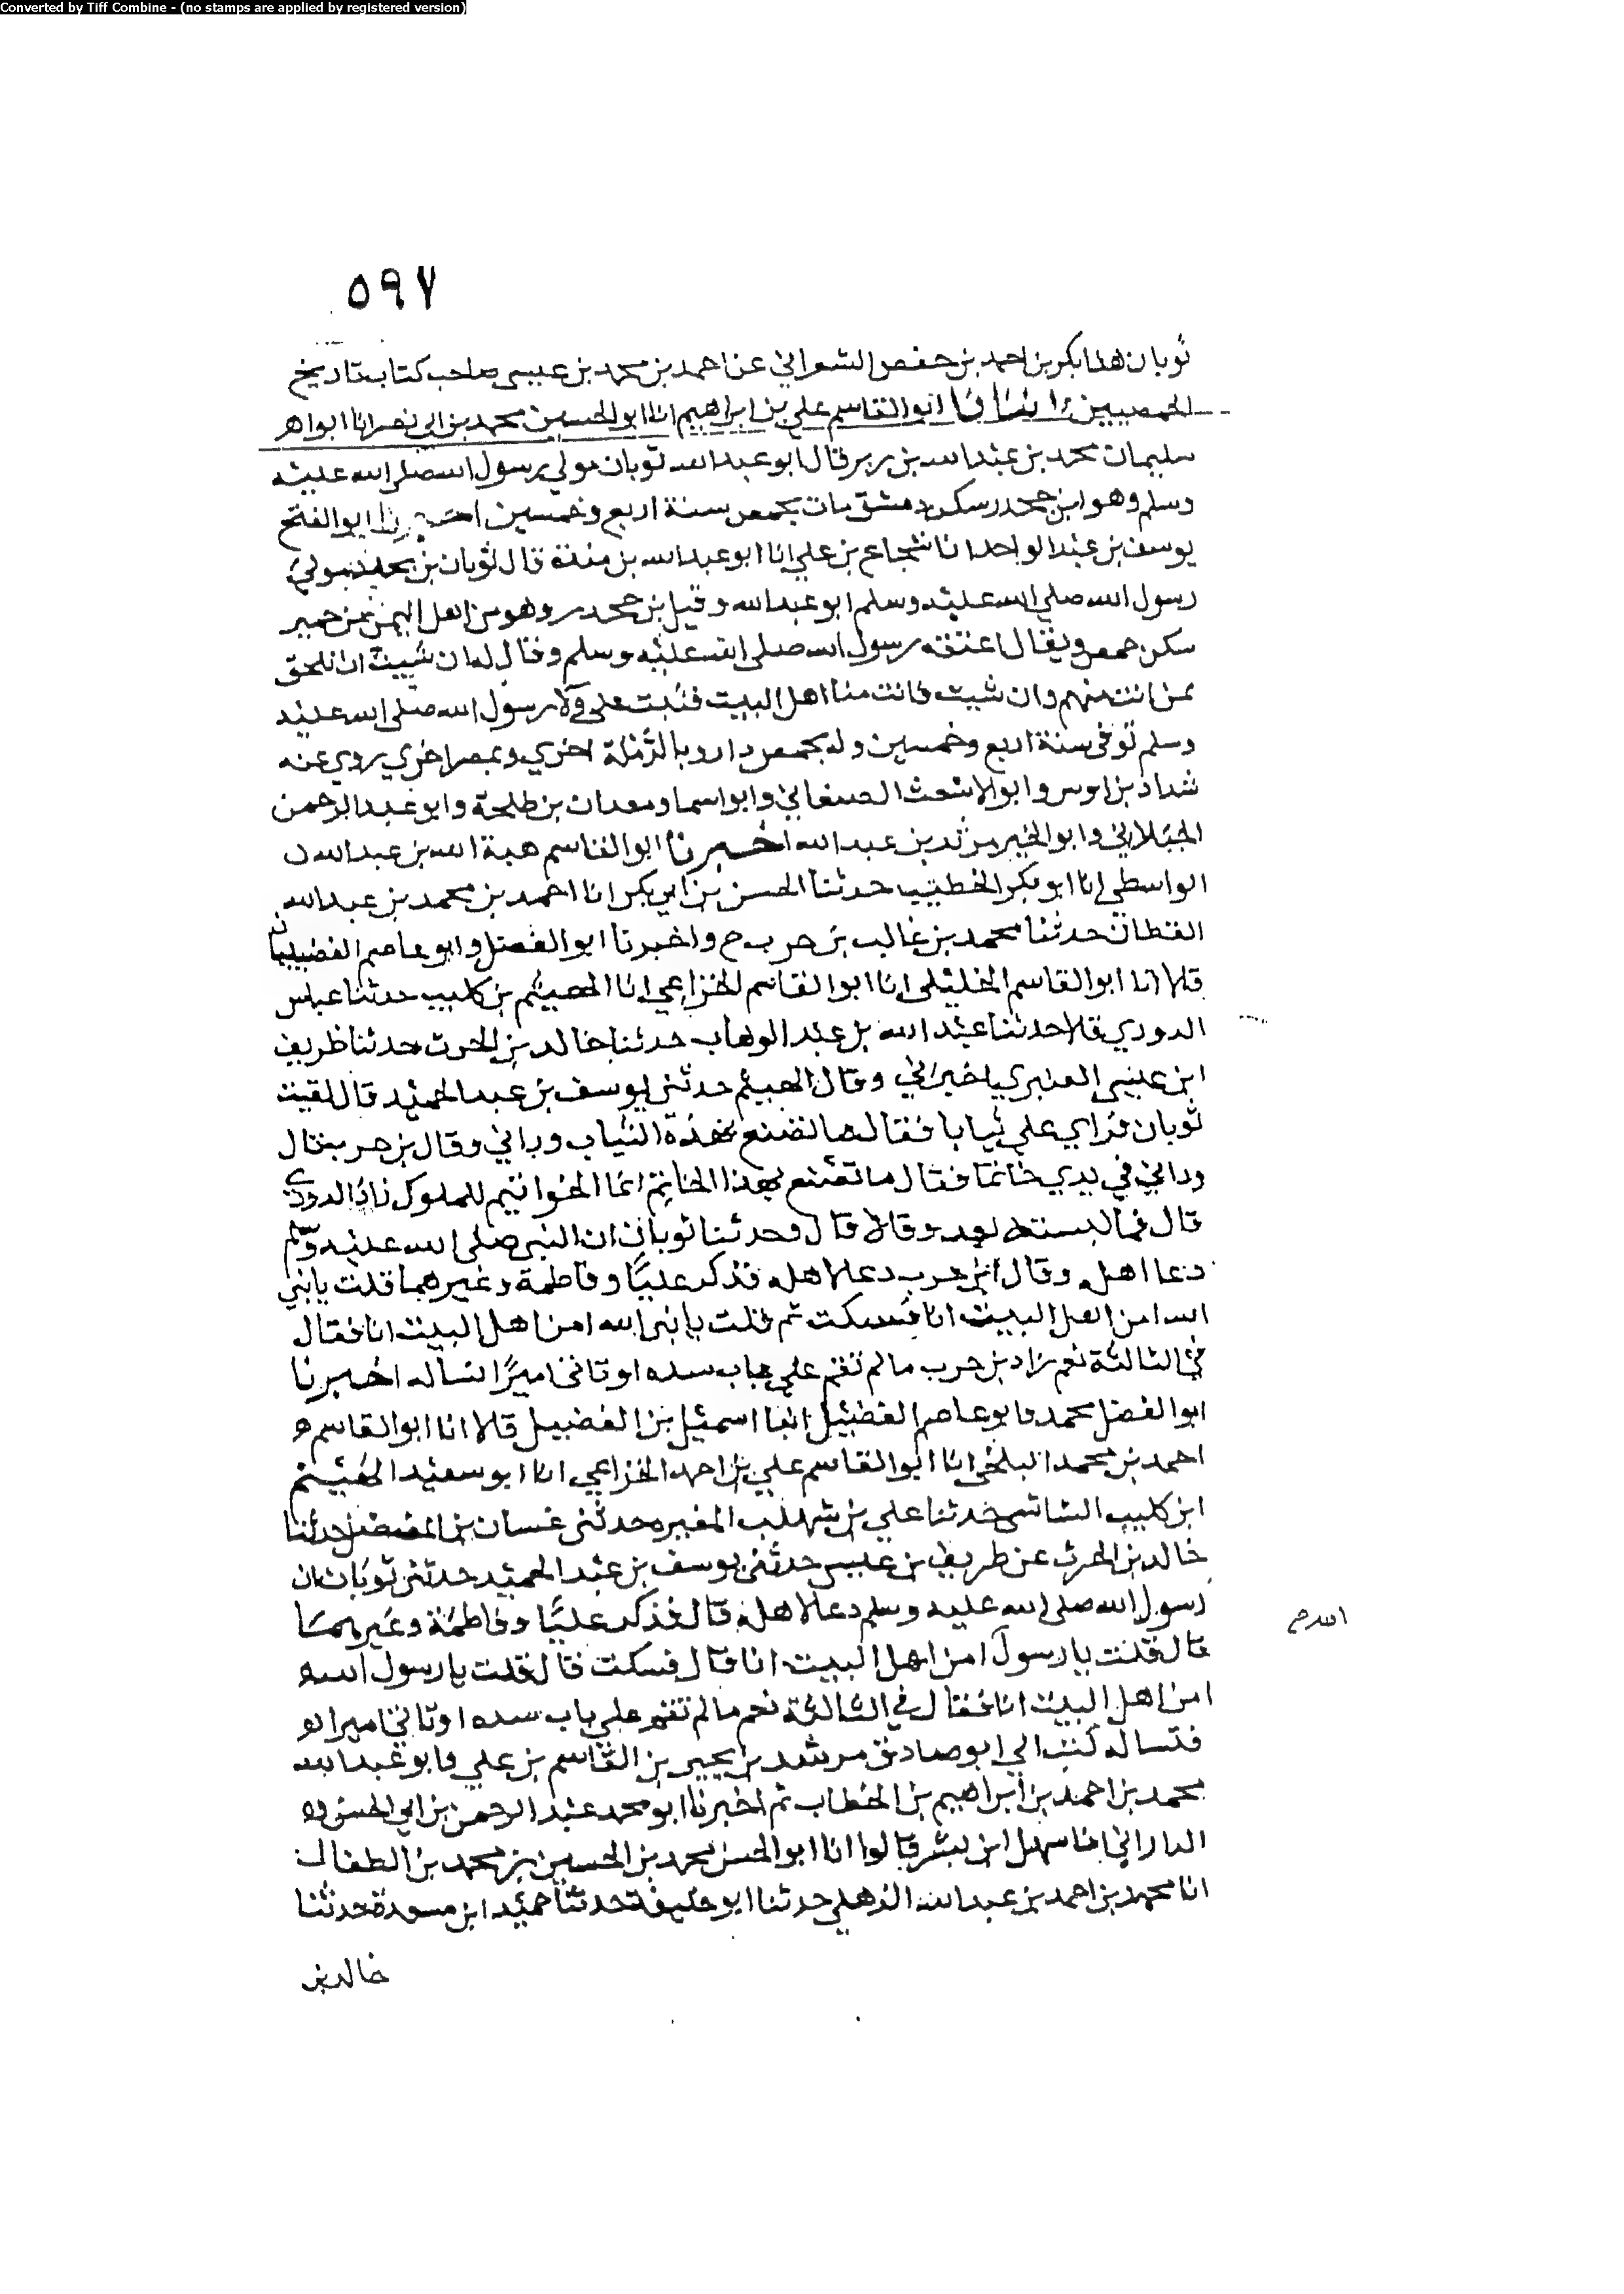 Converted by Tiff Combine - (no stamps are applied by registered version)
٥٩٧
ثوبان هذا بكر بن احمد بن حفص الشعراني عن احمد بن محمد بن عيسى صاحب كتاب تاريخ
الحمصيين ابو القاسم علي بن ابراهيم انا ابو الحسين محمد بن ابي نصر انا ابوا
سليمان محمد بن عبد الله بن زبر قال ابو عبد الله ثوبان مولي رسول الله صلى الله عليه
وسلم وهو ابن جحدر سكن دمشق مات بحمص سنة اربع وخمسين اخبرنا ابو الفتح
يوسف بن عبد الواحد انا شجاع بن علي انا ابو عبد الله بن مندة قال ثوبان بن بجدد مولي
رسول الله صلى الله عليه وسلم ابو عبد الله وقيل بن جحدر وهو من اهل اليمن من حمير
سكن حمص ويقال اعتقه رسول الله صلى الله عليه وسلم وقال له ان شيت ان تلحق
بمن انت منهم وان شيت فانت منا اهل البيت فثبت على ولا رسول الله صلى الله عليه
وسلم توفى سنة اربع وخمسين وله بحمص دار وبالرملة اخري وبمصر اخري يروي عنه
شداد بن اوس وابو الاشعث الصنعاني وابو اسما ومعدان بن طلحة وابو عبد الرحمن
الجبلاني وابو الخير مرثد بن عبد الله اخبرنا ابو القاسم هبة الله بن عبد الله
الواسطي انا ابو بكر الخطيب حدثنا الحسن بن ابي بكر انا احمد بن محمد بن عبد الله
القطان حدثنا محمد بن غالب بن حرب ح واخبرنا ابو الفضل وابو عاصم الفضيليان
قالا انا ابو القاسم الخليلى انا ابو القاسم الخزاعي انا الهيثم بن كليب حدثنا عباس
الدوري قالا حدثنا عبد الله بن عبد الوهاب حدثنا خالد بن الحرث حدثنا ظريف
ابن عيسى العنبري وقال الهيثم حدثنى يوسف بن عبد الحميد قال لقيت
ثوبان فراي علي ثيابا فقال ما تصنع بهذه الثياب وراني وقال بن حرب قال
وراني في يدي خاتما فقال ما تصنع بهذا الخاتم انما الخواتيم للملوك زاد الدوري
قال فما لبسته بعد وقالا قال وحدثنا ثوبان ان النبي صلى الله عليه وسلم
دعا اهله وقال ابن حرب دعا لاهله فذكر عليا وفاطمة وغيرهما قلت يا نبي
الله امن اهل البيت انا فسكت ثم قلت يا نبي الله امن اهل البيت انا فقال
في الثالثة نعم زاد بن حرب ما لم تقم على باب سده او تاتى اميرا تساله اخبرنا
ابو الفضل محمد وابو عاصم الفضيل ابنا اسمعيل بن الفضيل قالا انا ابو القاسم
احمد بن محمد البلخي انا ابو القاسم علي بن احمد الخزاعي انا ابو سعيد الهيثم
ابن كليب الشاشى حدثنا علي بن سهل بن المغيره حدثنى غسان بن المفضل حدثنا
خالد بن الحرث عن طريف بن عيسى حدثني يوسف بن عبد الحميد حدثنى ثوبان ان
رسول الله صلى الله عليه وسلم دعا لاهله قال فذكر عليا وفاطمة وغيرهما
قال فقلت يا رسول امن اهل البيت انا قال فسكت قال فقلت يا رسول الله
امن اهل البيت انا فقال في الثالثة نعم ما لم تقم على باب سده او تاتي اميرا
فتساله كتب الي ابو صادق مرشد بن يحيى بن القاسم بن علي وابو عبد الله
محمد بن احمد بن ابراهيم بن الخطاب ثم اخبرنا ابو محمد عبد الرحمن بن ابي الحسن
الداراني انا سهل ابن بشر قالوا انا ابو الحسن محمد بن الحسين بن محمد بن الطفال
انا محمد بن احمد بن عبد الله الذهلي حدثنا ابو خليفة حدثنا حميد ابن مسعدة حدثنا
خالد بن